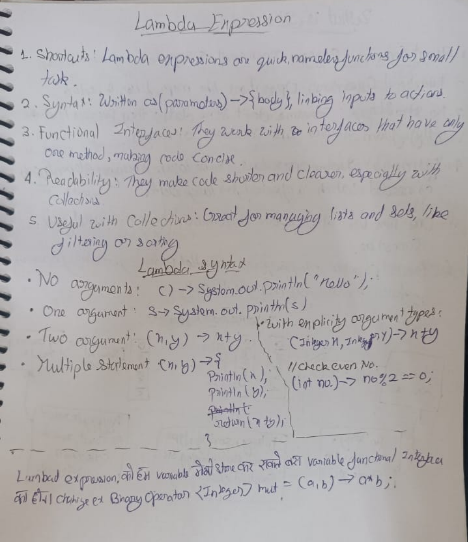 Lambda Expression
1. Shortcuts: Lambda expressions are quick, nameless functions for small
task.
2. Syntax: Written as (parameters) -> {body}, linking inputs to actions.
3. Functional Interfaces: They work with interfaces that have only
one method, making code concise.
4. Readability: They make code shorter and cleaner, especially with
collections
5. Useful with Collections: Great for managing lists and sets, like
filtering or sorting
Lambda syntax
• No arguments: () -> System.out.println("Hello");
• One argument: s -> System.out.println(s)
• Two argument: (x,y) -> x+y
• Multiple statement (x,y) -> {
println(x);
println(y);
return (x+y);
}
• With explicity argument types:
(Integer x, Integer y) -> x+y
// check even No.
(int no.) -> no%2 == 0;
Lambad expression को हम variable में store कर सकते variable functional Interface
का होना चाहिए ex BinaryOperator <Integer> mut = (a,b) -> a*b;